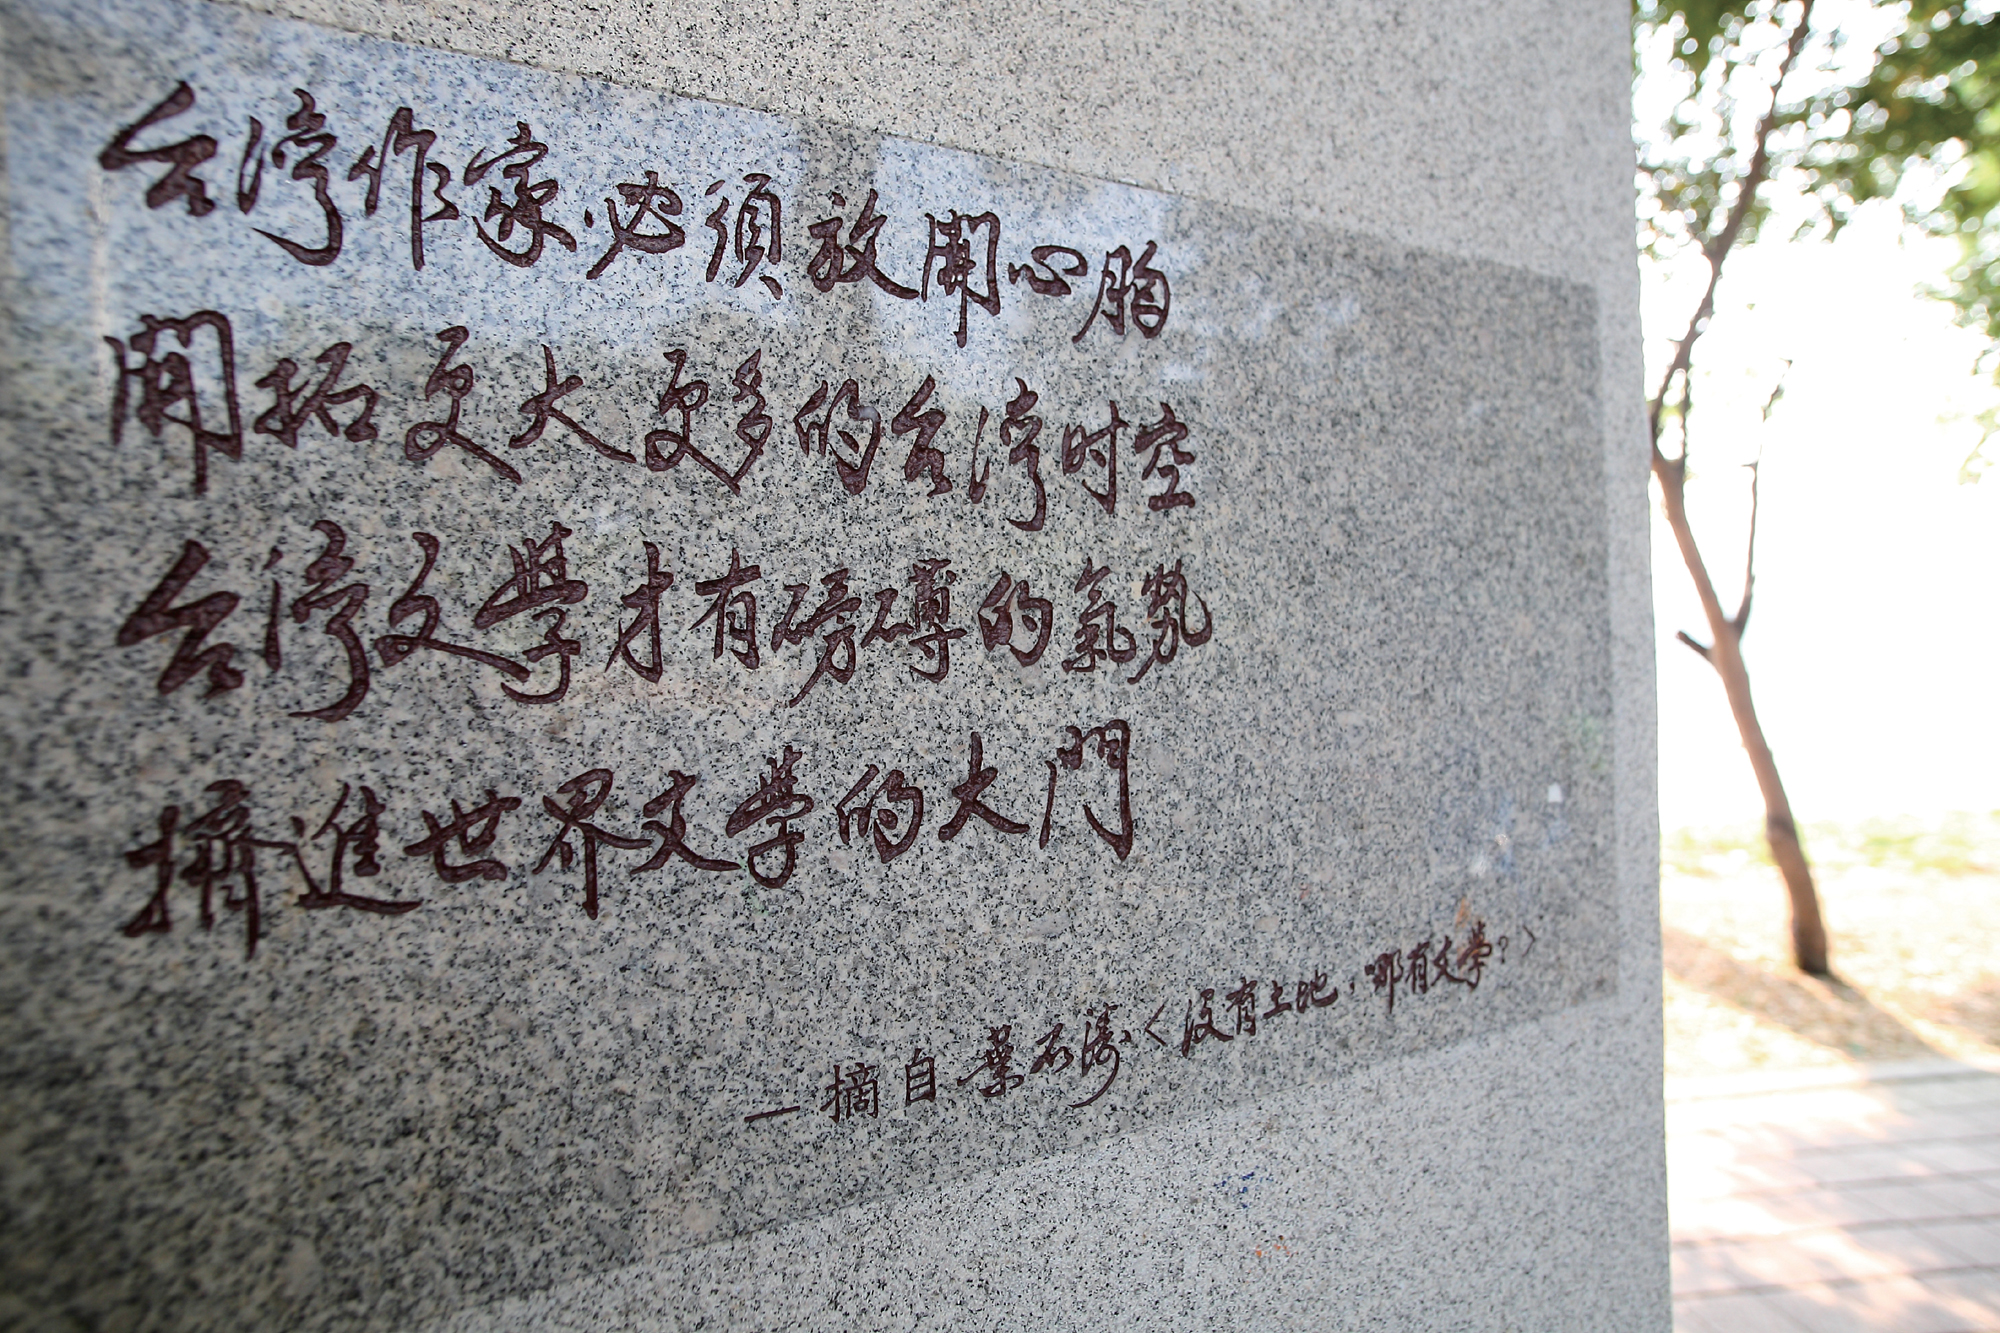 台灣作家必須放開心胸
開拓更大更多的台灣时空
台灣文學才有磅礡的氣勢
擠進世界文學的大門
—摘自葉石濤〈没有土地，哪有文學?〉